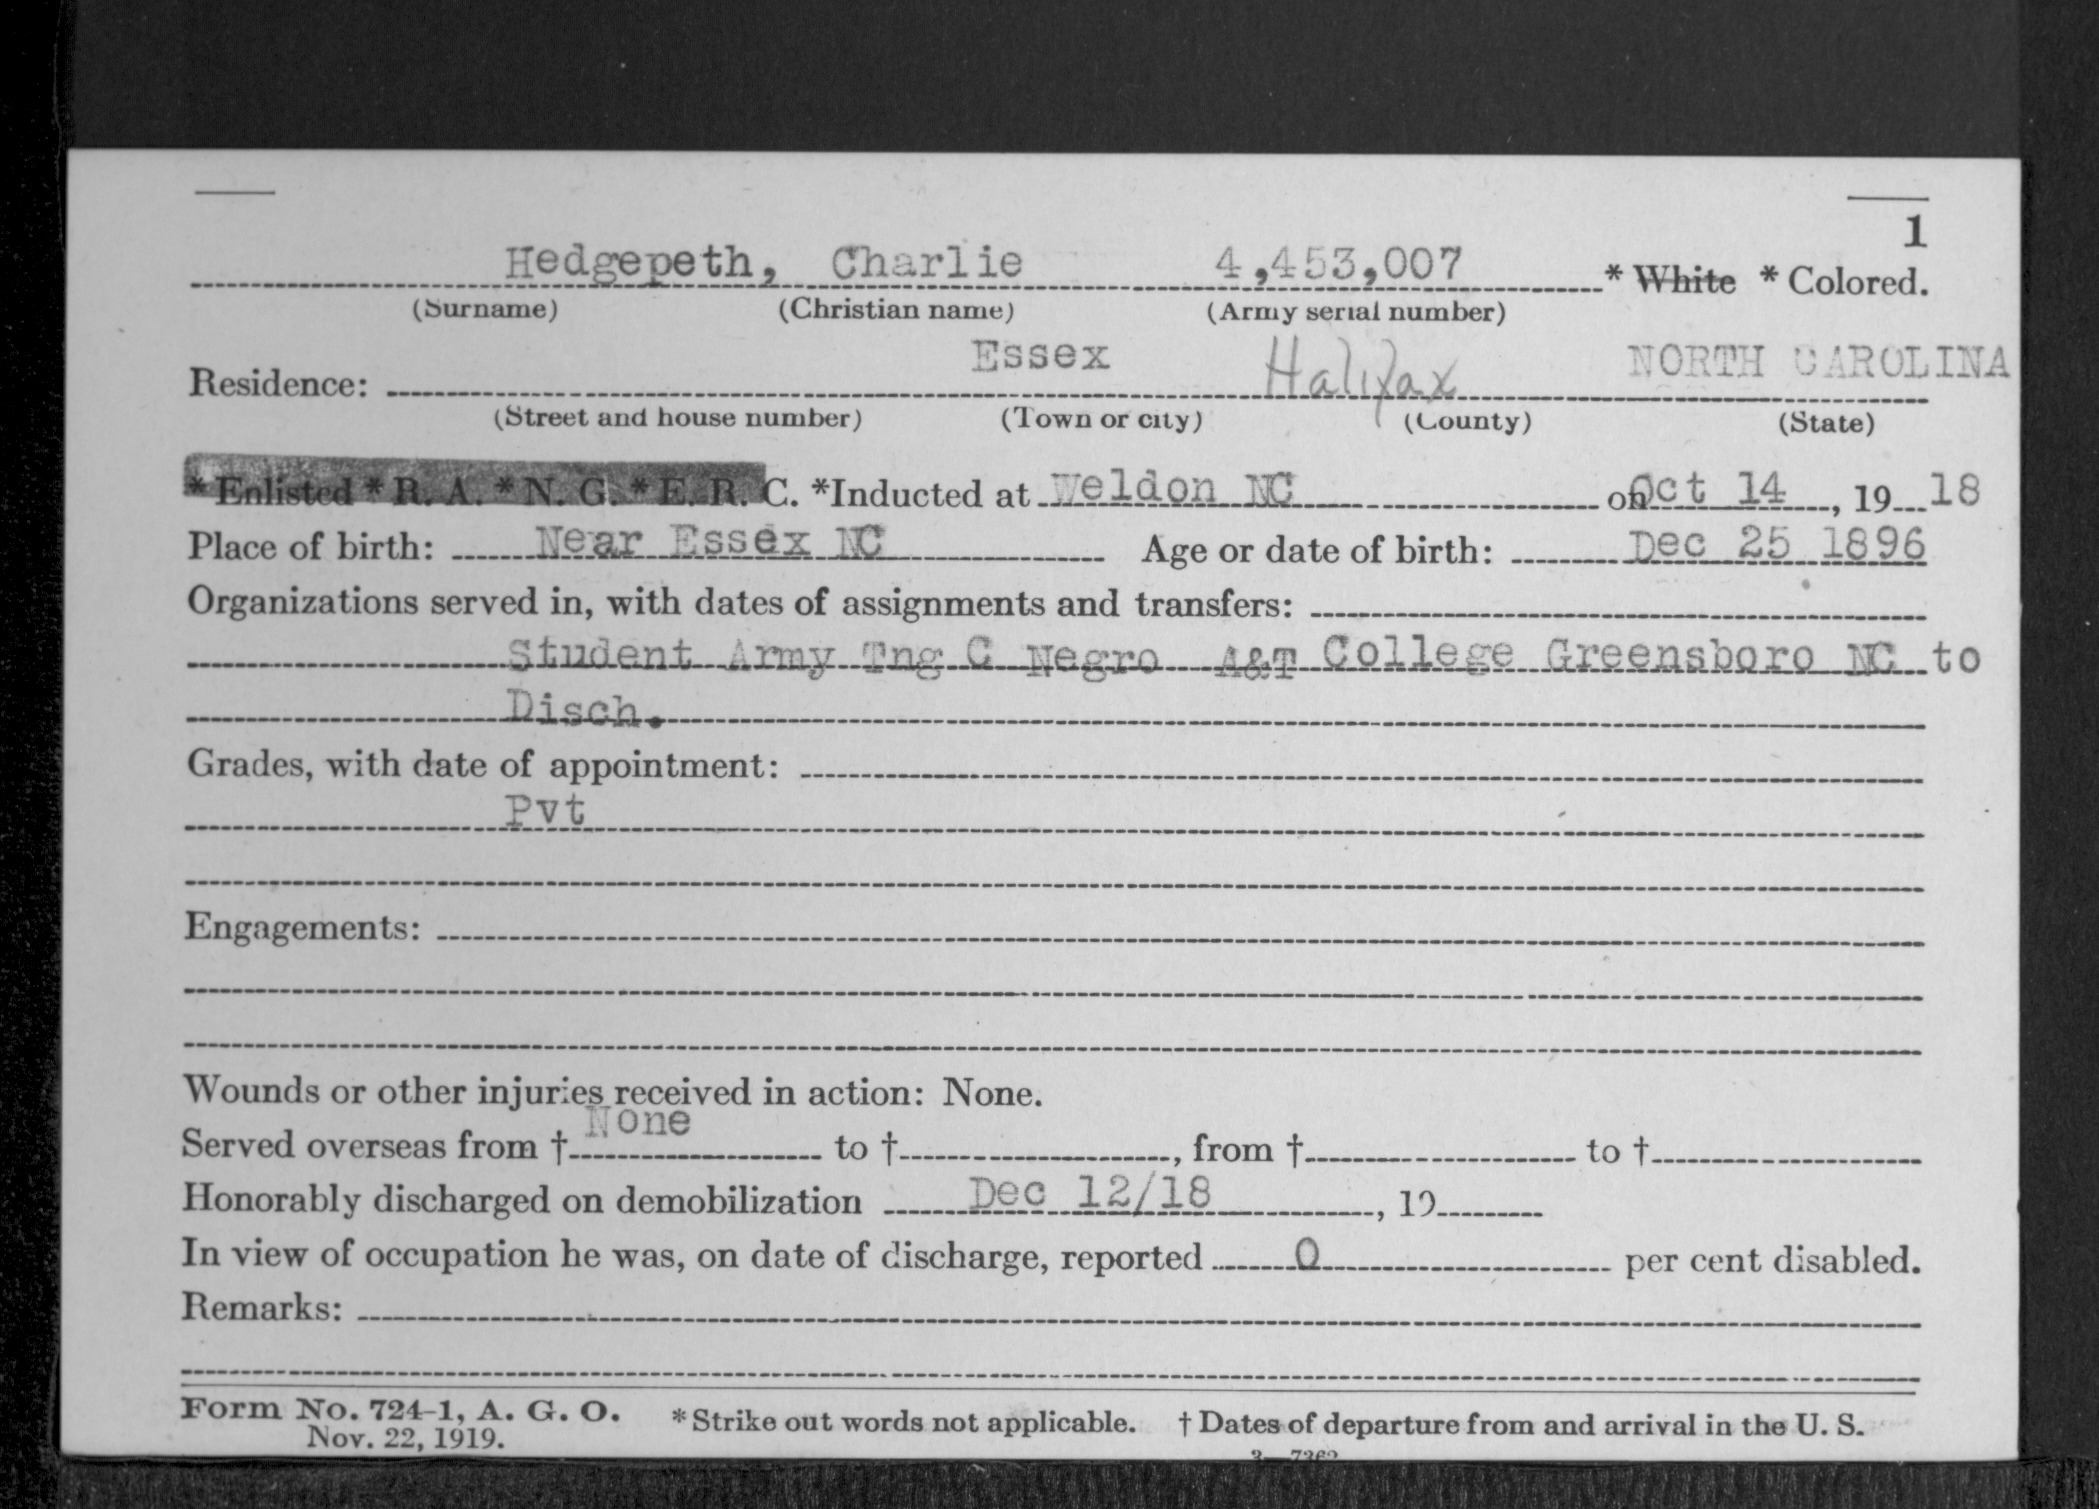 1
Hedgepeth, Charlie 4,453,007 * White * Colored.
(Surname) (Christian name) (Army serial number)
Residence: Essex Halifax NORTH CAROLINA
(Street and house number) (Town or city) (County) (State)
* Enlisted * R. A. * N. G. * E. R. C. *Inducted at Weldon NC on Oct 14, 19 18
Place of birth: Near Essex NC Age or date of birth: Dec 25 1896
Organizations served in, with dates of assignments and transfers:
Student Army Tng C Negro A&T College Greensboro NC to
Disch.
Grades, with date of appointment:
Pvt
Engagements:
Wounds or other injuries received in action: None.
None
Served overseas from † to †, from † to †
Honorably discharged on demobilization Dec 12/18, 19
In view of occupation he was, on date of discharge, reported 0 per cent disabled.
Remarks:
Form No. 724-1, A. G. O. * Strike out words not applicable. † Dates of departure from and arrival in the U. S.
Nov. 22, 1919.